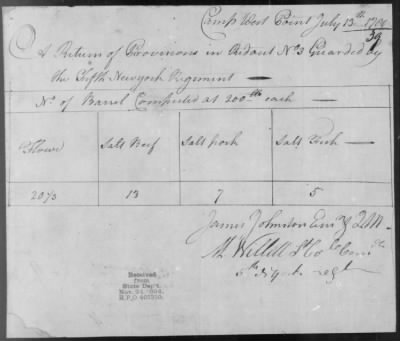 Camp West Point July 13th 1780
39
A Return of Provisions in Redout No 3 Guarded by
the Fifth Newyork Regiment
No of Barrel Computed at 200 lb each
Flower Salt Beef Salt pork Salt Fish
20 13 7 5
James Johnston Ensn & QM
M Willett Lt Col Comdt
5th regt
Received
from
State Dep't.
Nov. 24
R.P.O